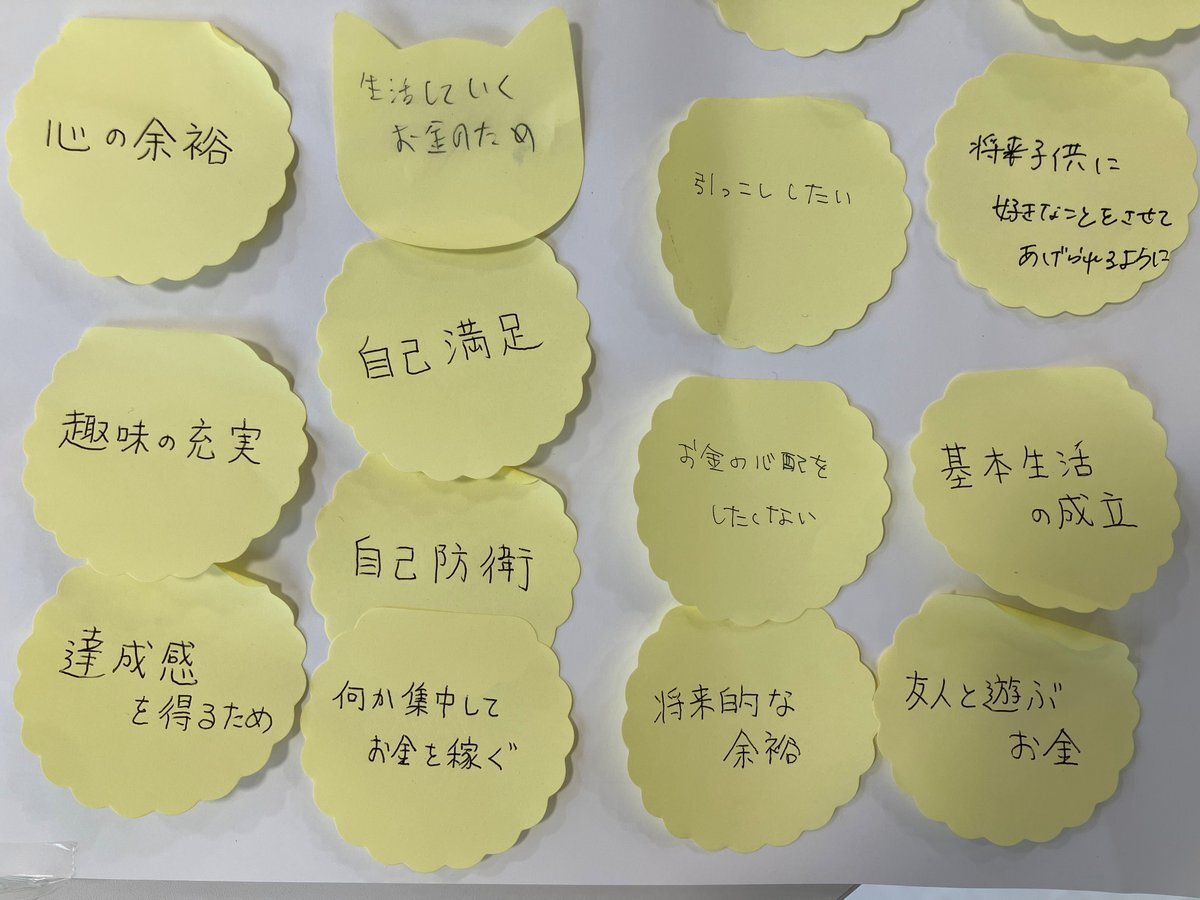 心の余裕
生活していく
お金のため
引っこししたい
将来子供に
好きなことをさせて
あげられるように
自己満足
趣味の充実
お金の心配を
したくない
基本生活
の成立
自己防衛
達成感
を得るため
何か集中して
お金を稼ぐ
将来的な
余裕
友人と遊ぶ
お金